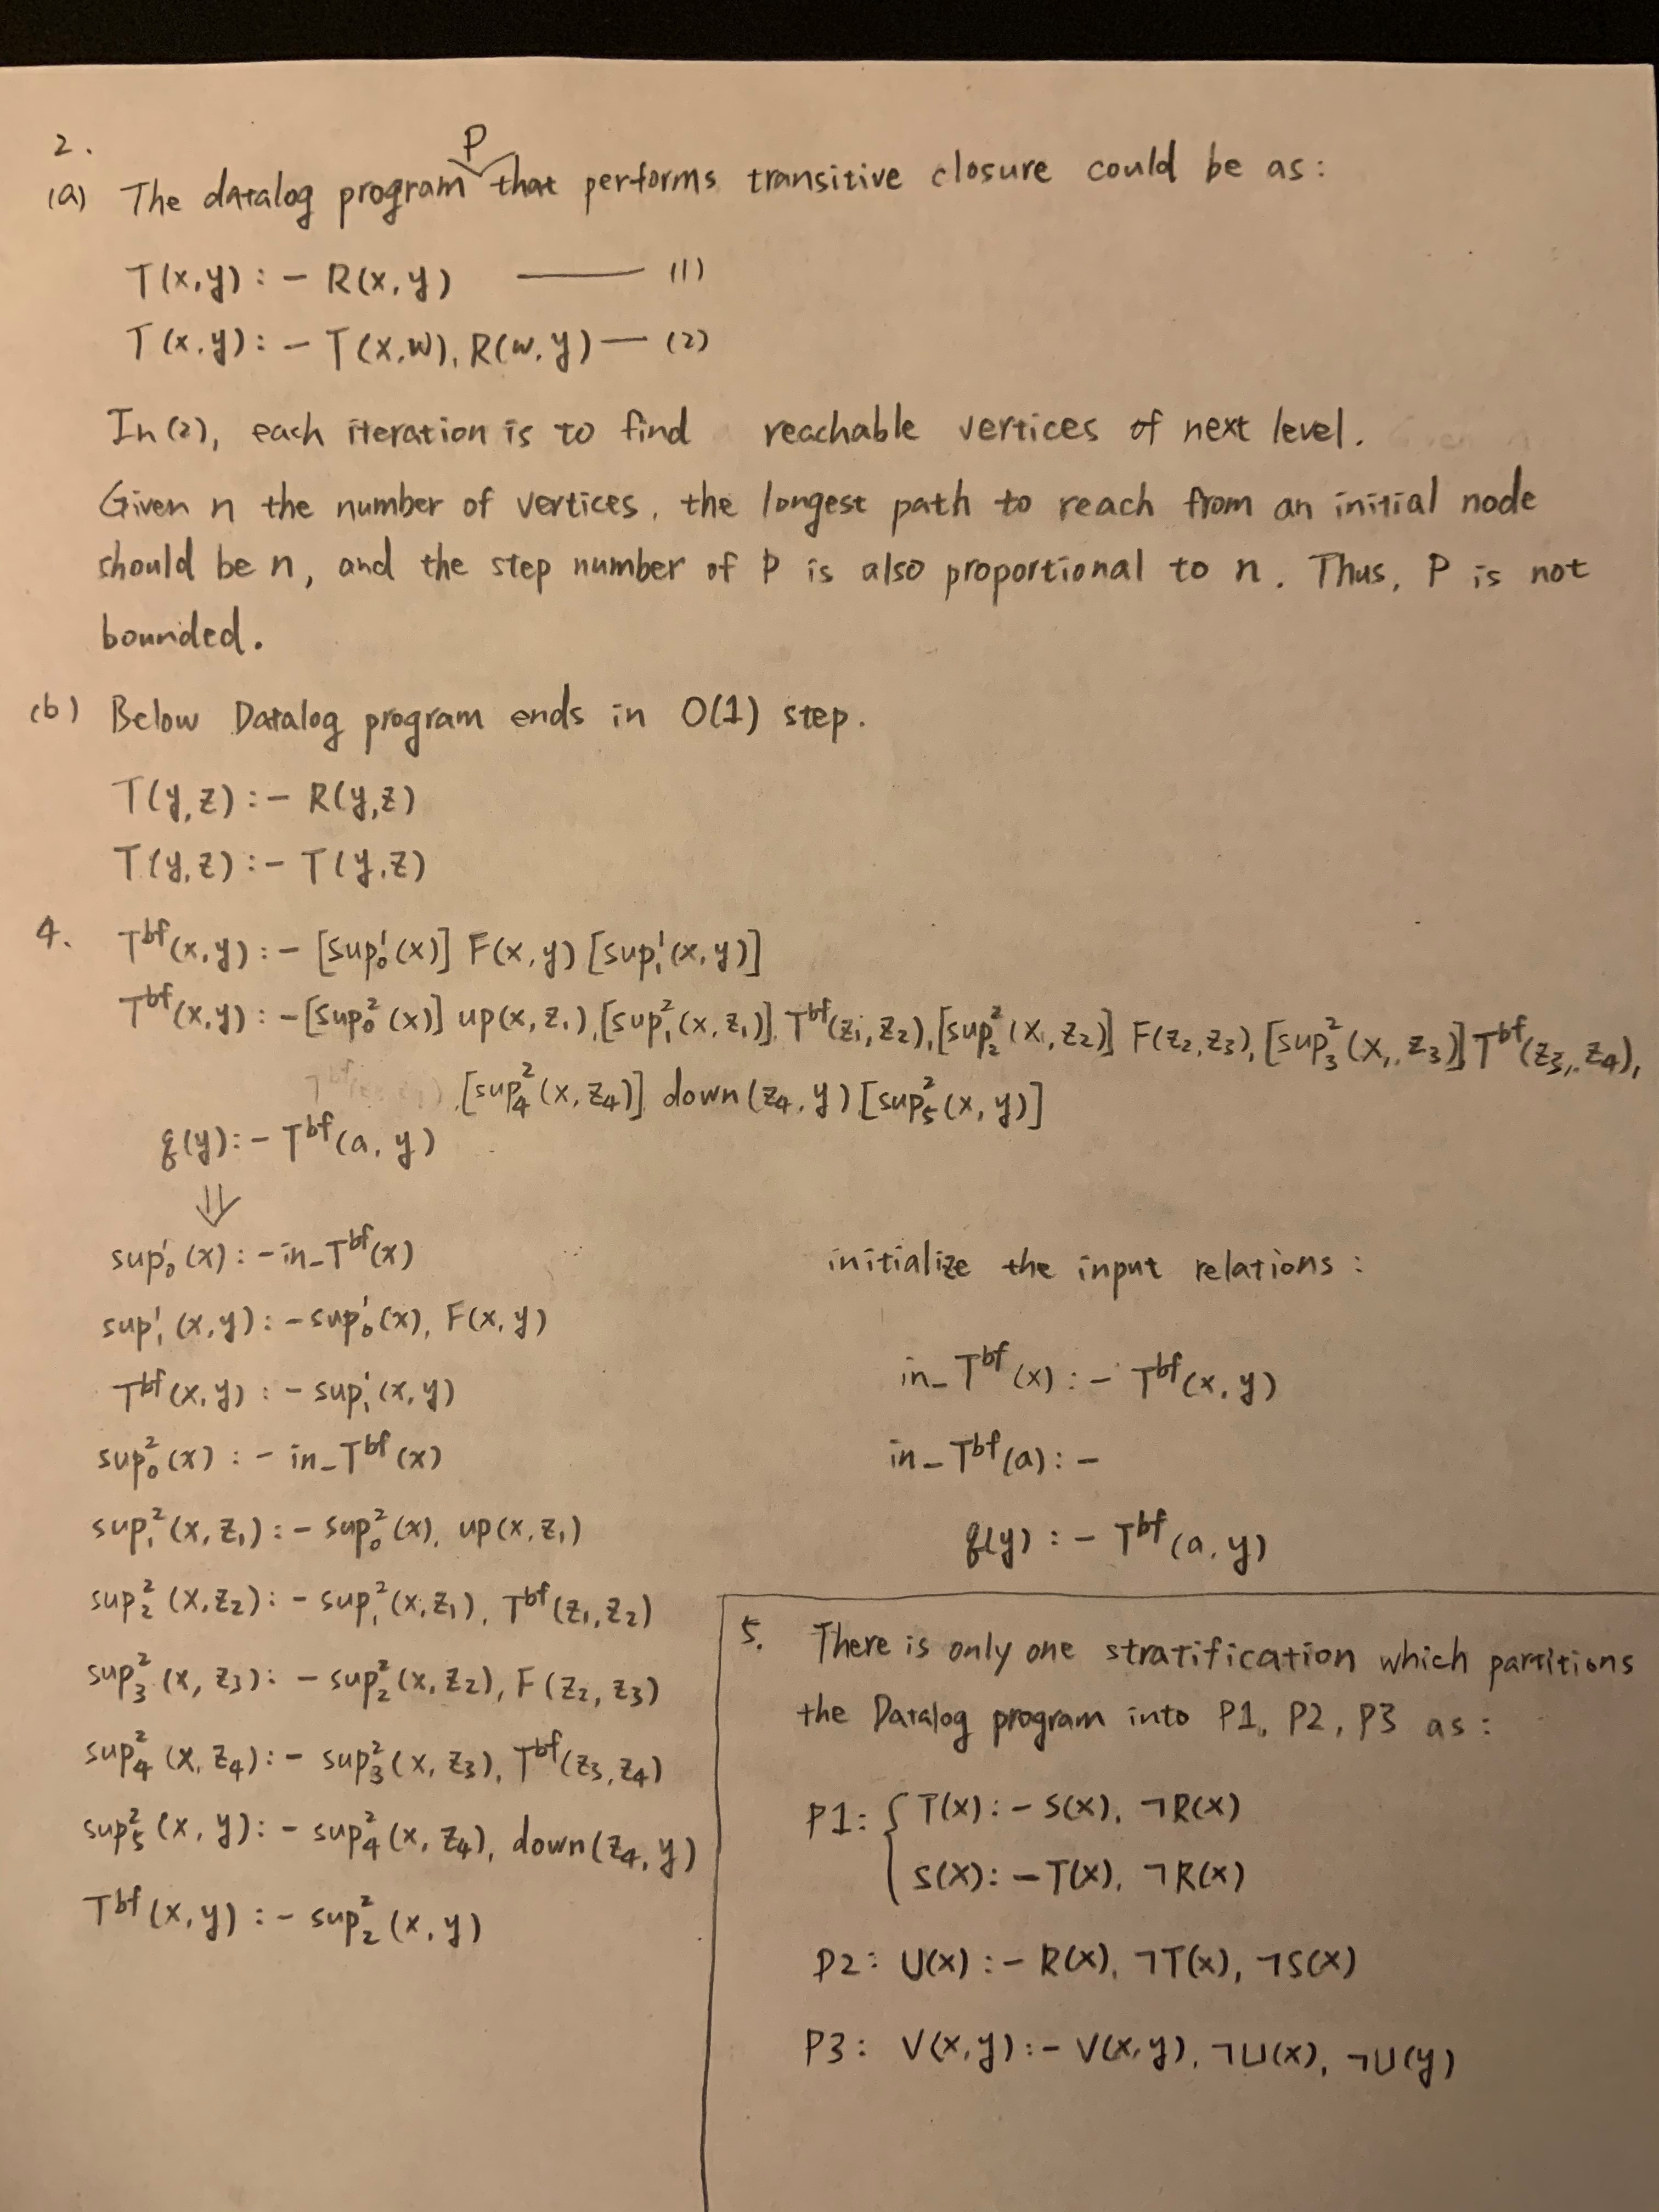 2.
P
(a) The datalog program that performs transitive closure could be as:
T(x,y) :- R(x,y) —— (1)
T(x,y) :- T(x,w), R(w,y) — (2)
In (2), each iteration is to find reachable vertices of next level.
Given n the number of vertices, the longest path to reach from an initial node
should be n, and the step number of P is also proportional to n. Thus, P is not
bounded.
(b) Below Datalog program ends in O(1) step.
T(y,z) :- R(y,z)
T(y,z) :- T(y,z)
4. T^bf(x,y) :- [sup₀¹(x)] F(x,y) [sup₁¹(x,y)]
T^bf(x,y) :- [sup₀²(x)] up(x,z₁), [sup₁²(x,z₁)], T^bf(z₁,z₂), [sup₂²(x,z₂)] F(z₂,z₃), [sup₃²(x,z₃)] T^bf(z₃,z₄),
[sup₄²(x,z₄)] down(z₄,y) [sup₅²(x,y)]
q(y) :- T^bf(a,y)
⇓
sup₀¹(x) :- in_T^bf(x)
sup₁¹(x,y) :- sup₀¹(x), F(x,y)
T^bf(x,y) :- sup₁¹(x,y)
sup₀²(x) :- in_T^bf(x)
sup₁²(x,z₁) :- sup₀²(x), up(x,z₁)
sup₂²(x,z₂) :- sup₁²(x,z₁), T^bf(z₁,z₂)
sup₃²(x,z₃) :- sup₂²(x,z₂), F(z₂,z₃)
sup₄²(x,z₄) :- sup₃²(x,z₃), T^bf(z₃,z₄)
sup₅²(x,y) :- sup₄²(x,z₄), down(z₄,y)
T^bf(x,y) :- sup₂²(x,y)
initialize the input relations:
in_T^bf(x) :- T^bf(x,y)
in_T^bf(a) :-
q(y) :- T^bf(a,y)
5. There is only one stratification which partitions
the Datalog program into P1, P2, P3 as:
P1: { T(x) :- S(x), ¬R(x)
S(x) :- T(x), ¬R(x)
P2: U(x) :- R(x), ¬T(x), ¬S(x)
P3: V(x,y) :- V(x,y), ¬U(x), ¬U(y)